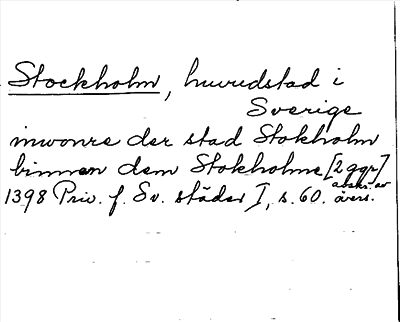 Stockholm, huvudstad i
Sverige
inwonre der stad Stokholm
binnen dem Stokholme [2 ggr]
1398 Priv. f. Sv. städer I, s. 60. avskr. av
övers.